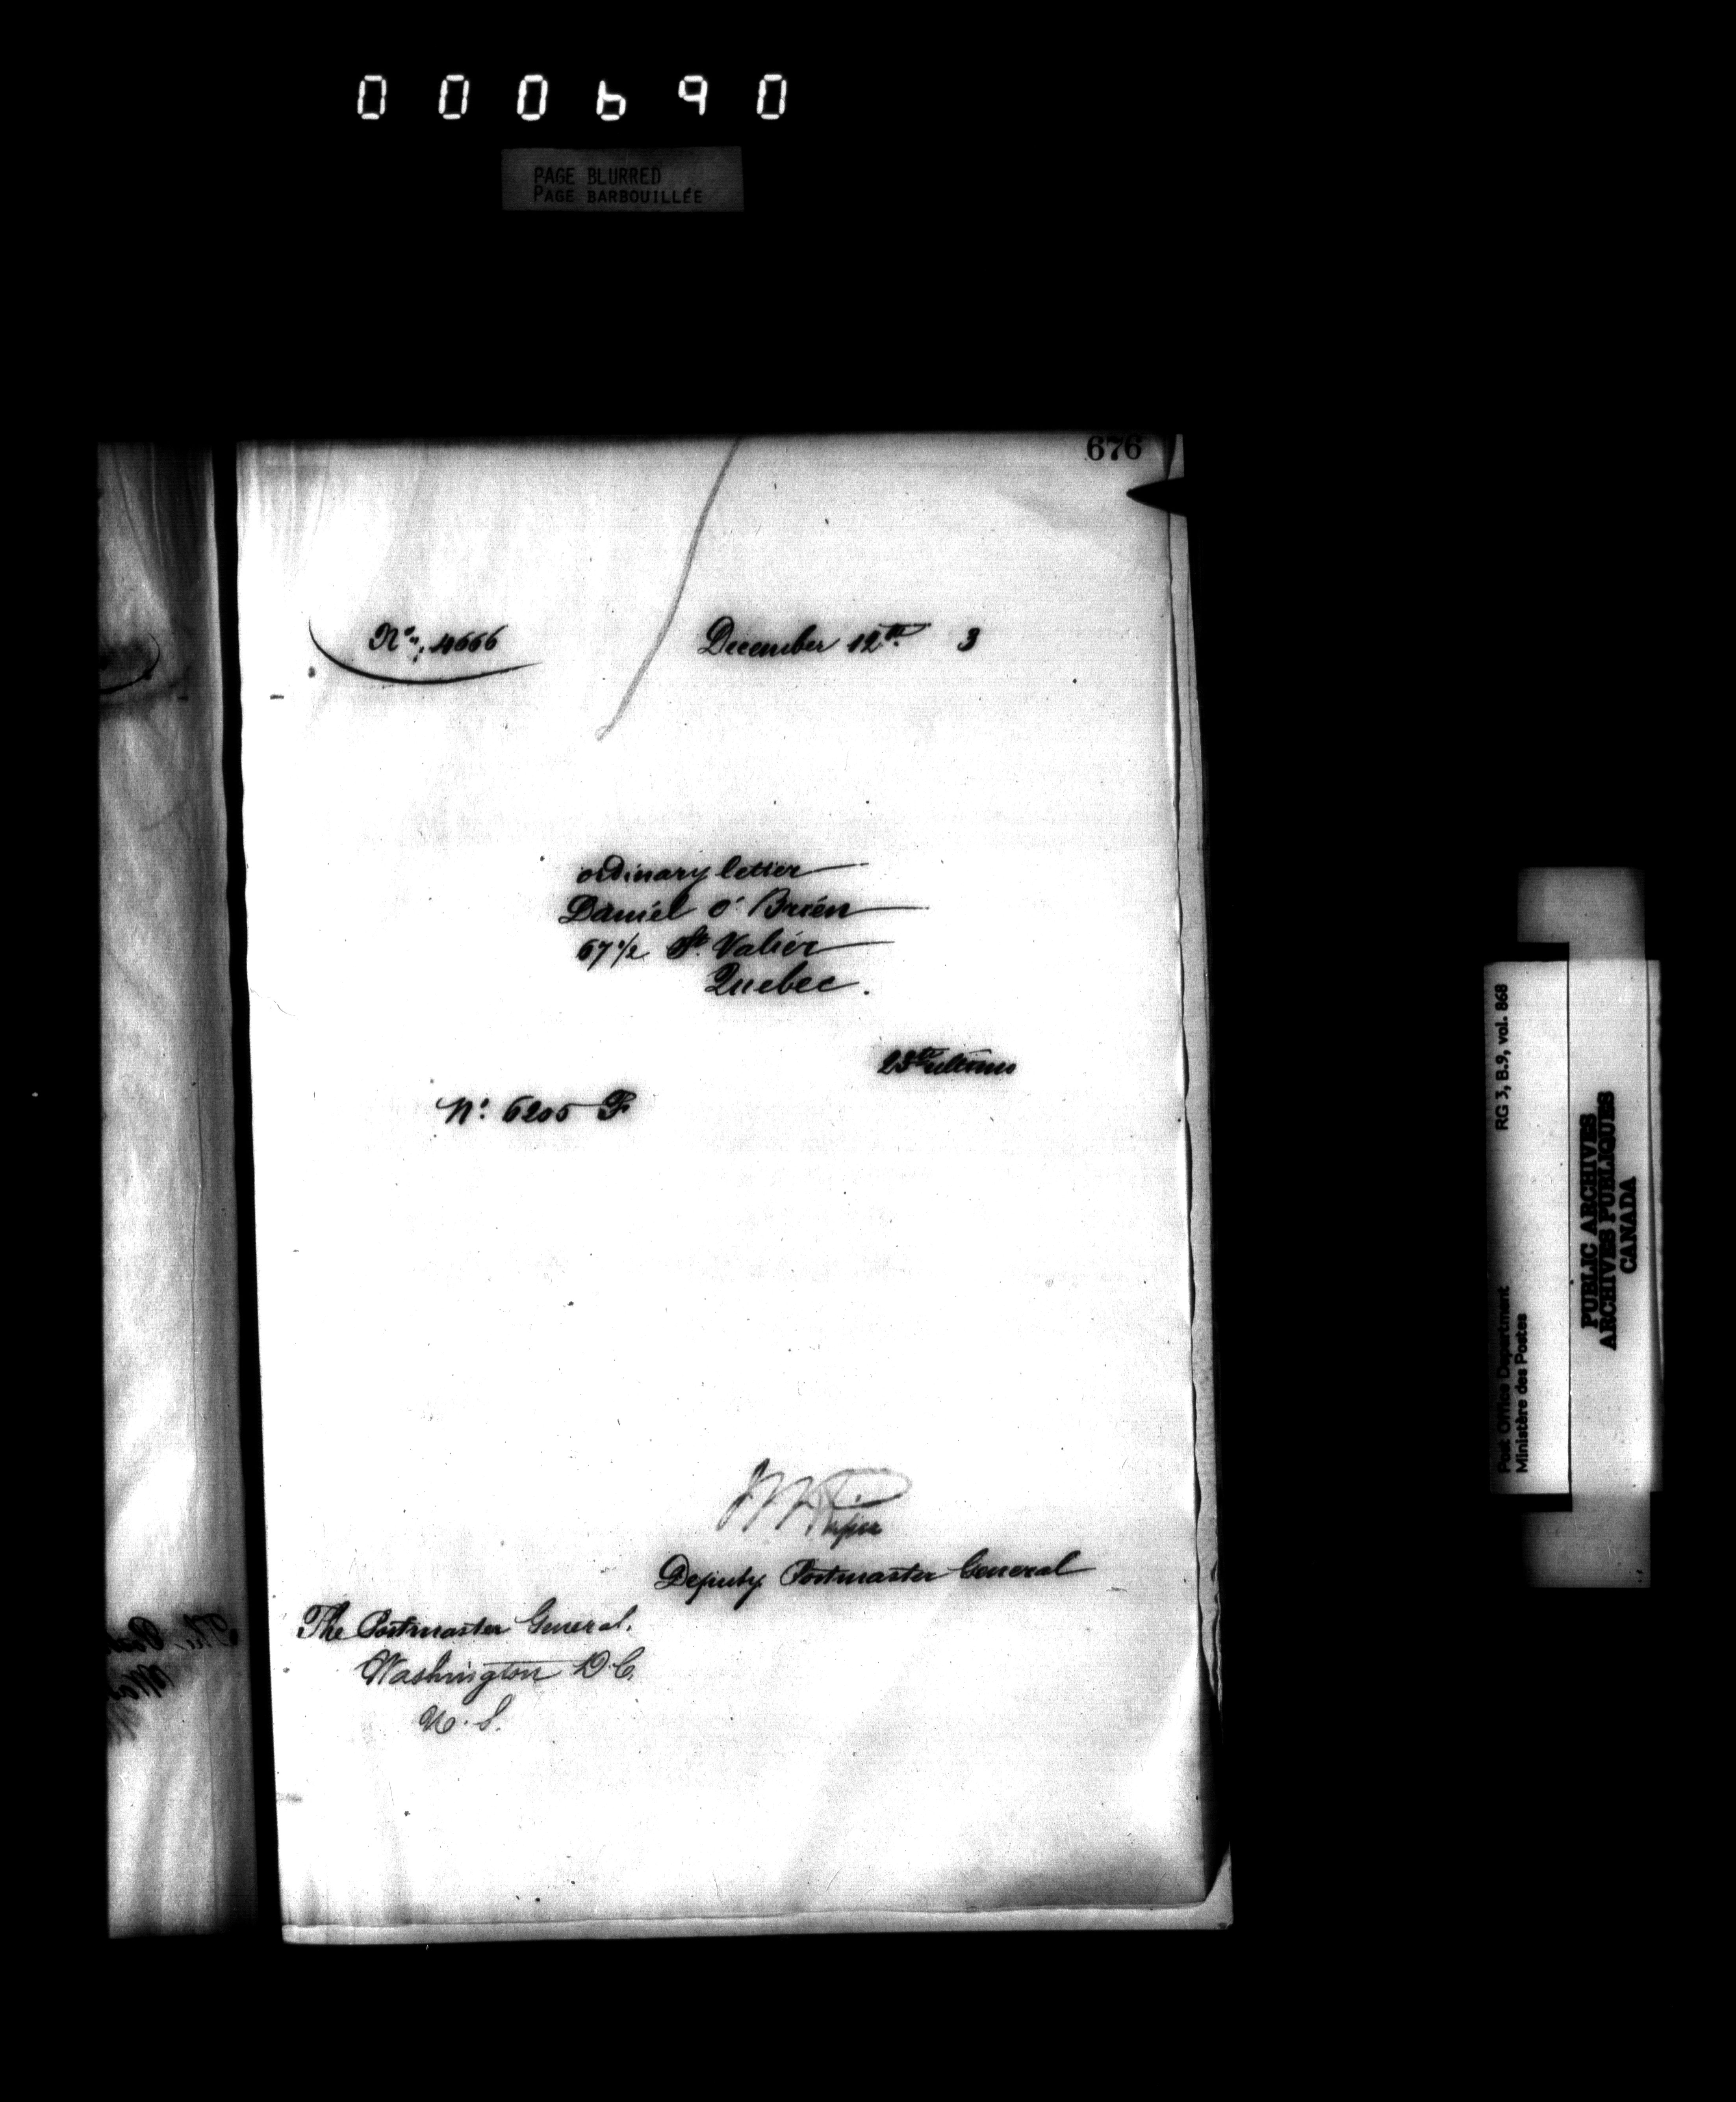 000690
PAGE BLURRED
PAGE BARBOUILLÉE
676
No. 4666 December 12th 3
ordinary letter
Daniel O'Brien
67 1/2 St. Valier
Quebec.
23rd ultimo
No. 6205 F
Deputy Postmaster General
The Postmaster General.
Washington D.C.
U.S.
Post Office Department RG 3, B.9, vol. 868
Ministère des Postes
PUBLIC ARCHIVES
ARCHIVES PUBLIQUES
CANADA